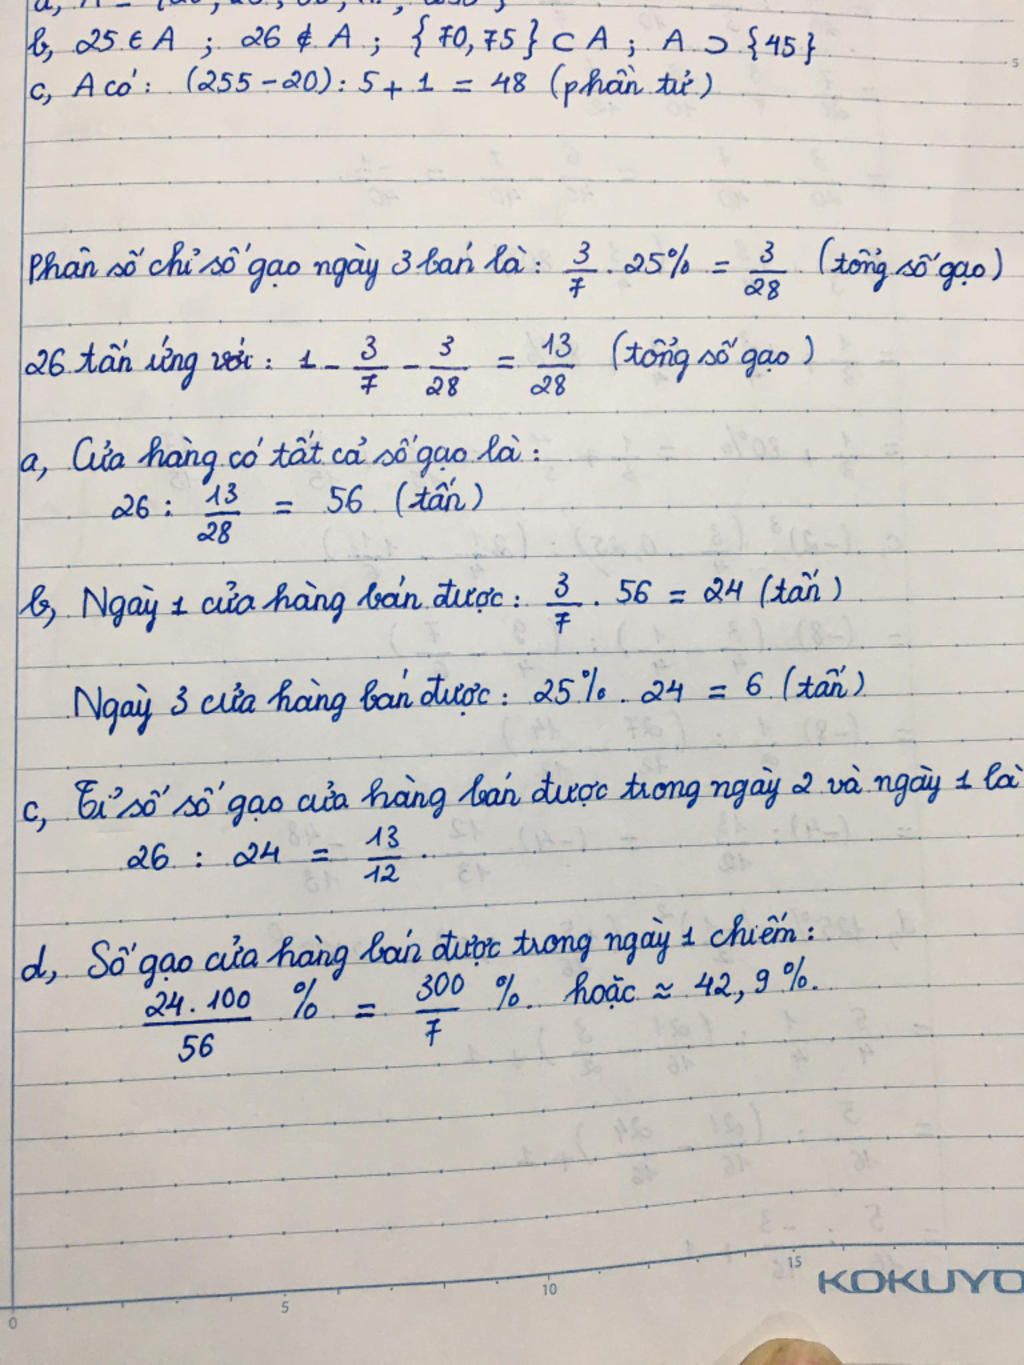 b, 25 ∈ A ; 26 ∉ A ; {70, 75} ⊂ A ; A ⊃ {45}
c, A có : (255 - 20) : 5 + 1 = 48 (phần tử)
Phân số chỉ số gạo ngày 3 bán là : 3/7 . 25% = 3/28 (tổng số gạo)
26 tấn ứng với : 1 - 3/7 - 3/28 = 13/28 (tổng số gạo)
a, Cửa hàng có tất cả số gạo là :
26 : 13/28 = 56 (tấn)
b, Ngày 1 cửa hàng bán được : 3/7 . 56 = 24 (tấn)
Ngày 3 cửa hàng bán được : 25% . 24 = 6 (tấn)
c, Tỉ số số gạo cửa hàng bán được trong ngày 2 và ngày 1 là
26 : 24 = 13/12 .
d, Số gạo cửa hàng bán được trong ngày 1 chiếm :
24 . 100/56 % = 300/7 %. hoặc ≈ 42,9%.
0 5 10 15
KOKUYO